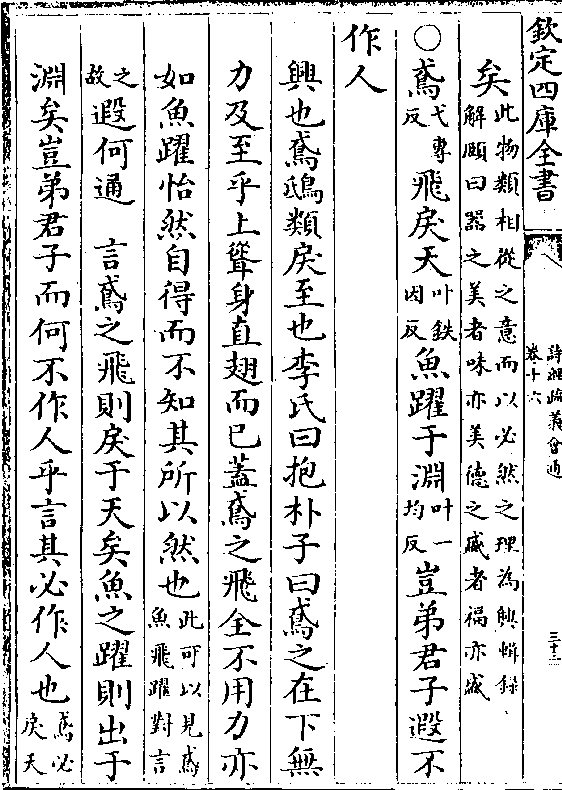 欽定四庫全書
詩經疏義會通
卷十六
三十二
矣此物類相從之意而以必然之理為興輯録
解頤曰器之美者味亦美德之盛者福亦盛
○鳶弋專反飛戾天叶鉄因反魚躍于淵叶一均反豈弟君子遐不
作人
興也鳶鴟類戾至也李氏曰抱朴子曰鳶之在下無
力及至乎上聳身直翅而已蓋鳶之飛全不用力亦
如魚躍怡然自得而不知其所以然也此可以見鳶魚飛躍對言
之故遐何通　言鳶之飛則戾于天矣魚之躍則出于
淵矣豈弟君子而何不作人乎言其必作人也鳶必戾天